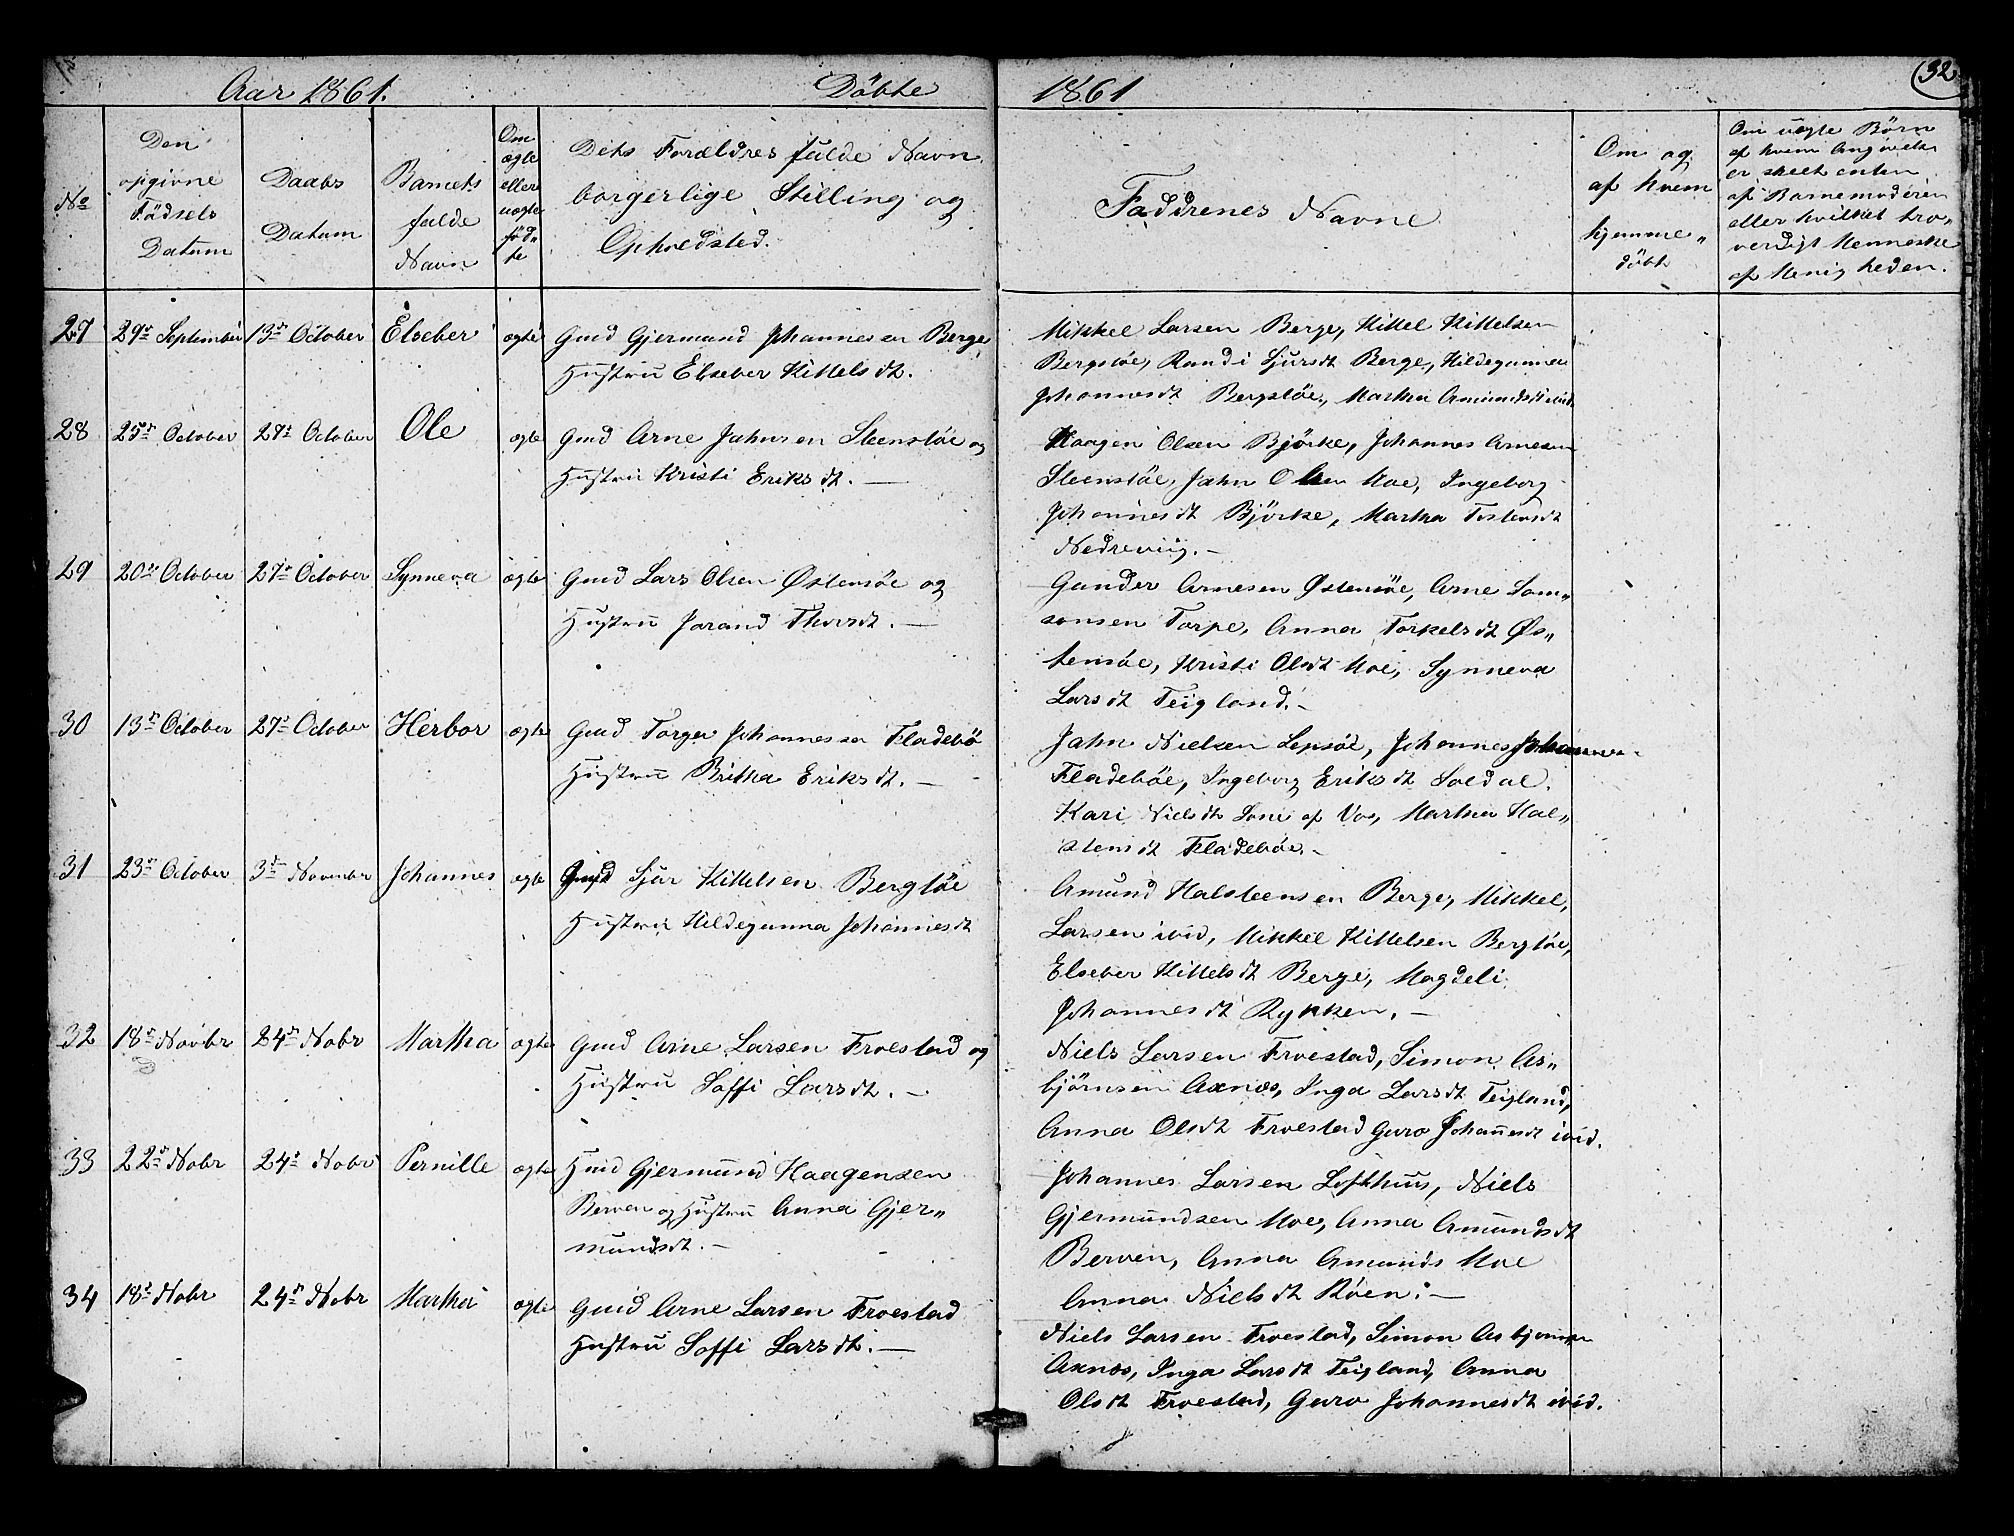 Aar 1861. Döbte 1861 32
No
Den opgivne Födsels Datum
Daabs Datum
Barnets fulde Navn
Om ægte eller uægte föd„te
Dets Forældres fulde Navn, borgerlige Stilling og Opholdsted.
Faddrenes Navne
Om og af hvem hjemme„döbt
Om uægte Börn af hvem Angivelse er skeet enten af Barnemoderen eller hvilket tro„verdigt Menneske af Menigheden.
27 29de September 13de October Elseber ægte Gmd Gjermund Johannesen Berge
Hustru Elseber Kittelsdt.
Mikkel Larsen Berge, Kittel Kittelsen
Bergstöe, Randi Sjursdt Berge, Hildegunna
Johannesdt Bergstöe, Martha Amundsdt ibid.
28 25de October 27de October Ole ægte Gmd Arne Jahnsen Steenstöe og
Hustru Kristi Eriksdt. —
Haagen Olsen Björke, Johannes Arnesen
Steenstöe, Jahn Olsen Moe, Ingeborg
Johannesdt Björke, Martha Tostensdt
Nedreviig. —
29 20de October 27de October Synneva ægte Gmd Lars Olsen Östensöe og
Hustru Jorand Thorsdt. —
Gunder Arnesen Östensöe, Arne Sam„
sonsen Torpe, Anna Torkelsdt Ös„
tensöe, Kristi Olsdt Moe, Synneva
Larsdt Teigland. —
30 13de October 27de October Herbor ægte Gmd Torger Johannesen Fladebö
Hustru Britha Eriksdt. —
Jahn Nielsen Lepsöe, Johannes Johannes
Fladeböe, Ingeborg Eriksdt Soldal.
Kari Nielsdt Lone af Vos, Martha Hal„
stensdt Fladeböe. —
31 23de October 3de November Johannes ægte Gmd Sjur Kittelsen Bergtöe
Hustru Hildegunna Johannesdt
Amund Halsteensen Berge, Mikkel,
Larsen ibid, Mikkel Kittelsen Bergtöe,
Elseber Kittelsdt Berge, Magdeli
Johannesdt Rykken. —
32 18de Novbr 24de Nobr Martha ægte Gmd Arne Larsen Froestad og
Hustru Soffi Larsdt. —
Niels Larsen Froestad, Simon As„
björnsen Axnæs, Inga Larsdt Teigland,
Anna Olsdt Froestad Guro Johanesdt ibid.
33 22de Nobr 24de Nobr Pernille ægte Hmd Gjermund Haagensen
Berven og Hustru Anna Gjer„
mundsdt. —
Johannes Larsen Lofthuus, Niels
Gjermundsen Moe, Anna Amundsdt
Berven, Anna Amunds Moe
Anna Nielsdt Röen. —
34 18de Nobr 24de Nobr Martha ægte Gmd Arne Larsen Froestad
Hustru Soffi Larsdt. —
Niels Larsen Froestad, Simon Asbjörnsen
Axnæs, Inga Larsdt Teigland, Anna
Olsdt Froestad, Guro Johannesdt ibid.